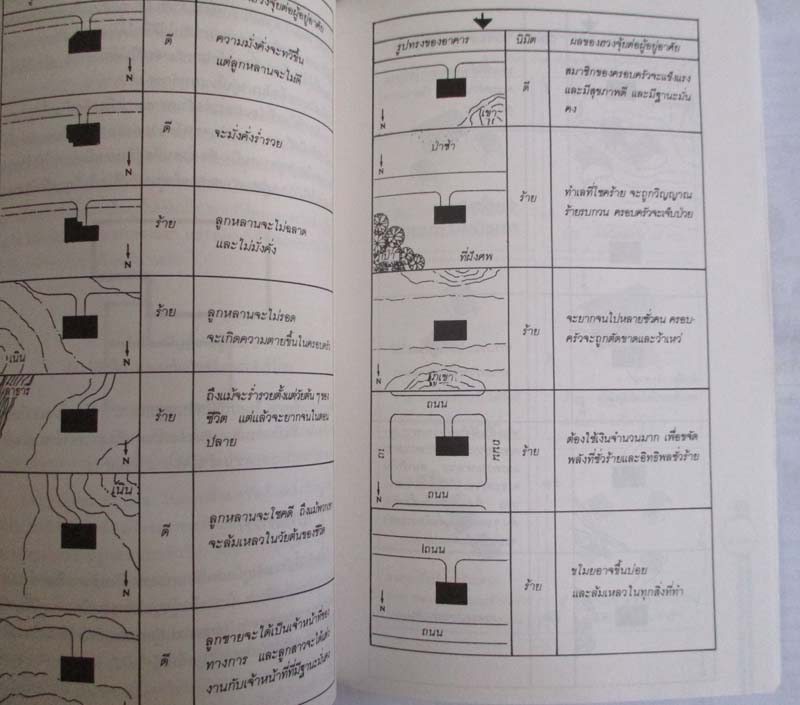 วงจุ้ยต่อผู้อยู่อาศัย
ดี
ความมั่งคั่งจะทวีขึ้น
แต่ลูกหลานจะไม่ดี
N
ดี
จะมั่งคั่งร่ำรวย
N
ร้าย
ลูกหลานจะไม่ฉลาด
และไม่มั่งคั่ง
N
เนิน
ร้าย
ลูกหลานจะไม่รอด
จะเกิดความตายขึ้นในครอบครัว
N
ลำธาร
ร้าย
ถึงแม้จะร่ำรวยตั้งแต่วัยต้นๆของ
ชีวิต แต่แล้วจะยากจนในตอน
ปลาย
N
เนิน
ดี
ลูกหลานจะโชคดี ถึงแม้พวกเขา
จะล้มเหลวในวัยต้นของชีวิต
N
ดี
ลูกชายจะได้เป็นเจ้าหน้าที่ของ
ทางการ และลูกสาวจะได้แต่ง
งานกับเจ้าหน้าที่ที่มีฐานะมั่นคง
N
รูปทรงของอาคาร
นิมิต
ผลของฮวงจุ้ยต่อผู้อยู่อาศัย
เขา
N
ดี
สมาชิกของครอบครัวจะแข็งแรง
และมีสุขภาพดี และมีฐานะมั่น
คง
ป่าช้า
ป่า
ที่ฝังศพ
N
ร้าย
ทำเลที่โชคร้าย จะถูกวิญญาณ
ร้ายรบกวน ครอบครัวจะเจ็บป่วย
ภูเขา
N
ร้าย
จะยากจนไปหลายชั่วคน ครอบ-
ครัวจะถูกตัดขาดและว้าเหว่
ถนน
ถนน
ถนน
N
ร้าย
ต้องใช้เงินจำนวนมาก เพื่อขจัด
พลังที่ชั่วร้ายและอิทธิพลชั่วร้าย
ถนน
ถนน
N
ร้าย
ขโมยอาจขึ้นบ่อย
และล้มเหลวในทุกสิ่งที่ทำ